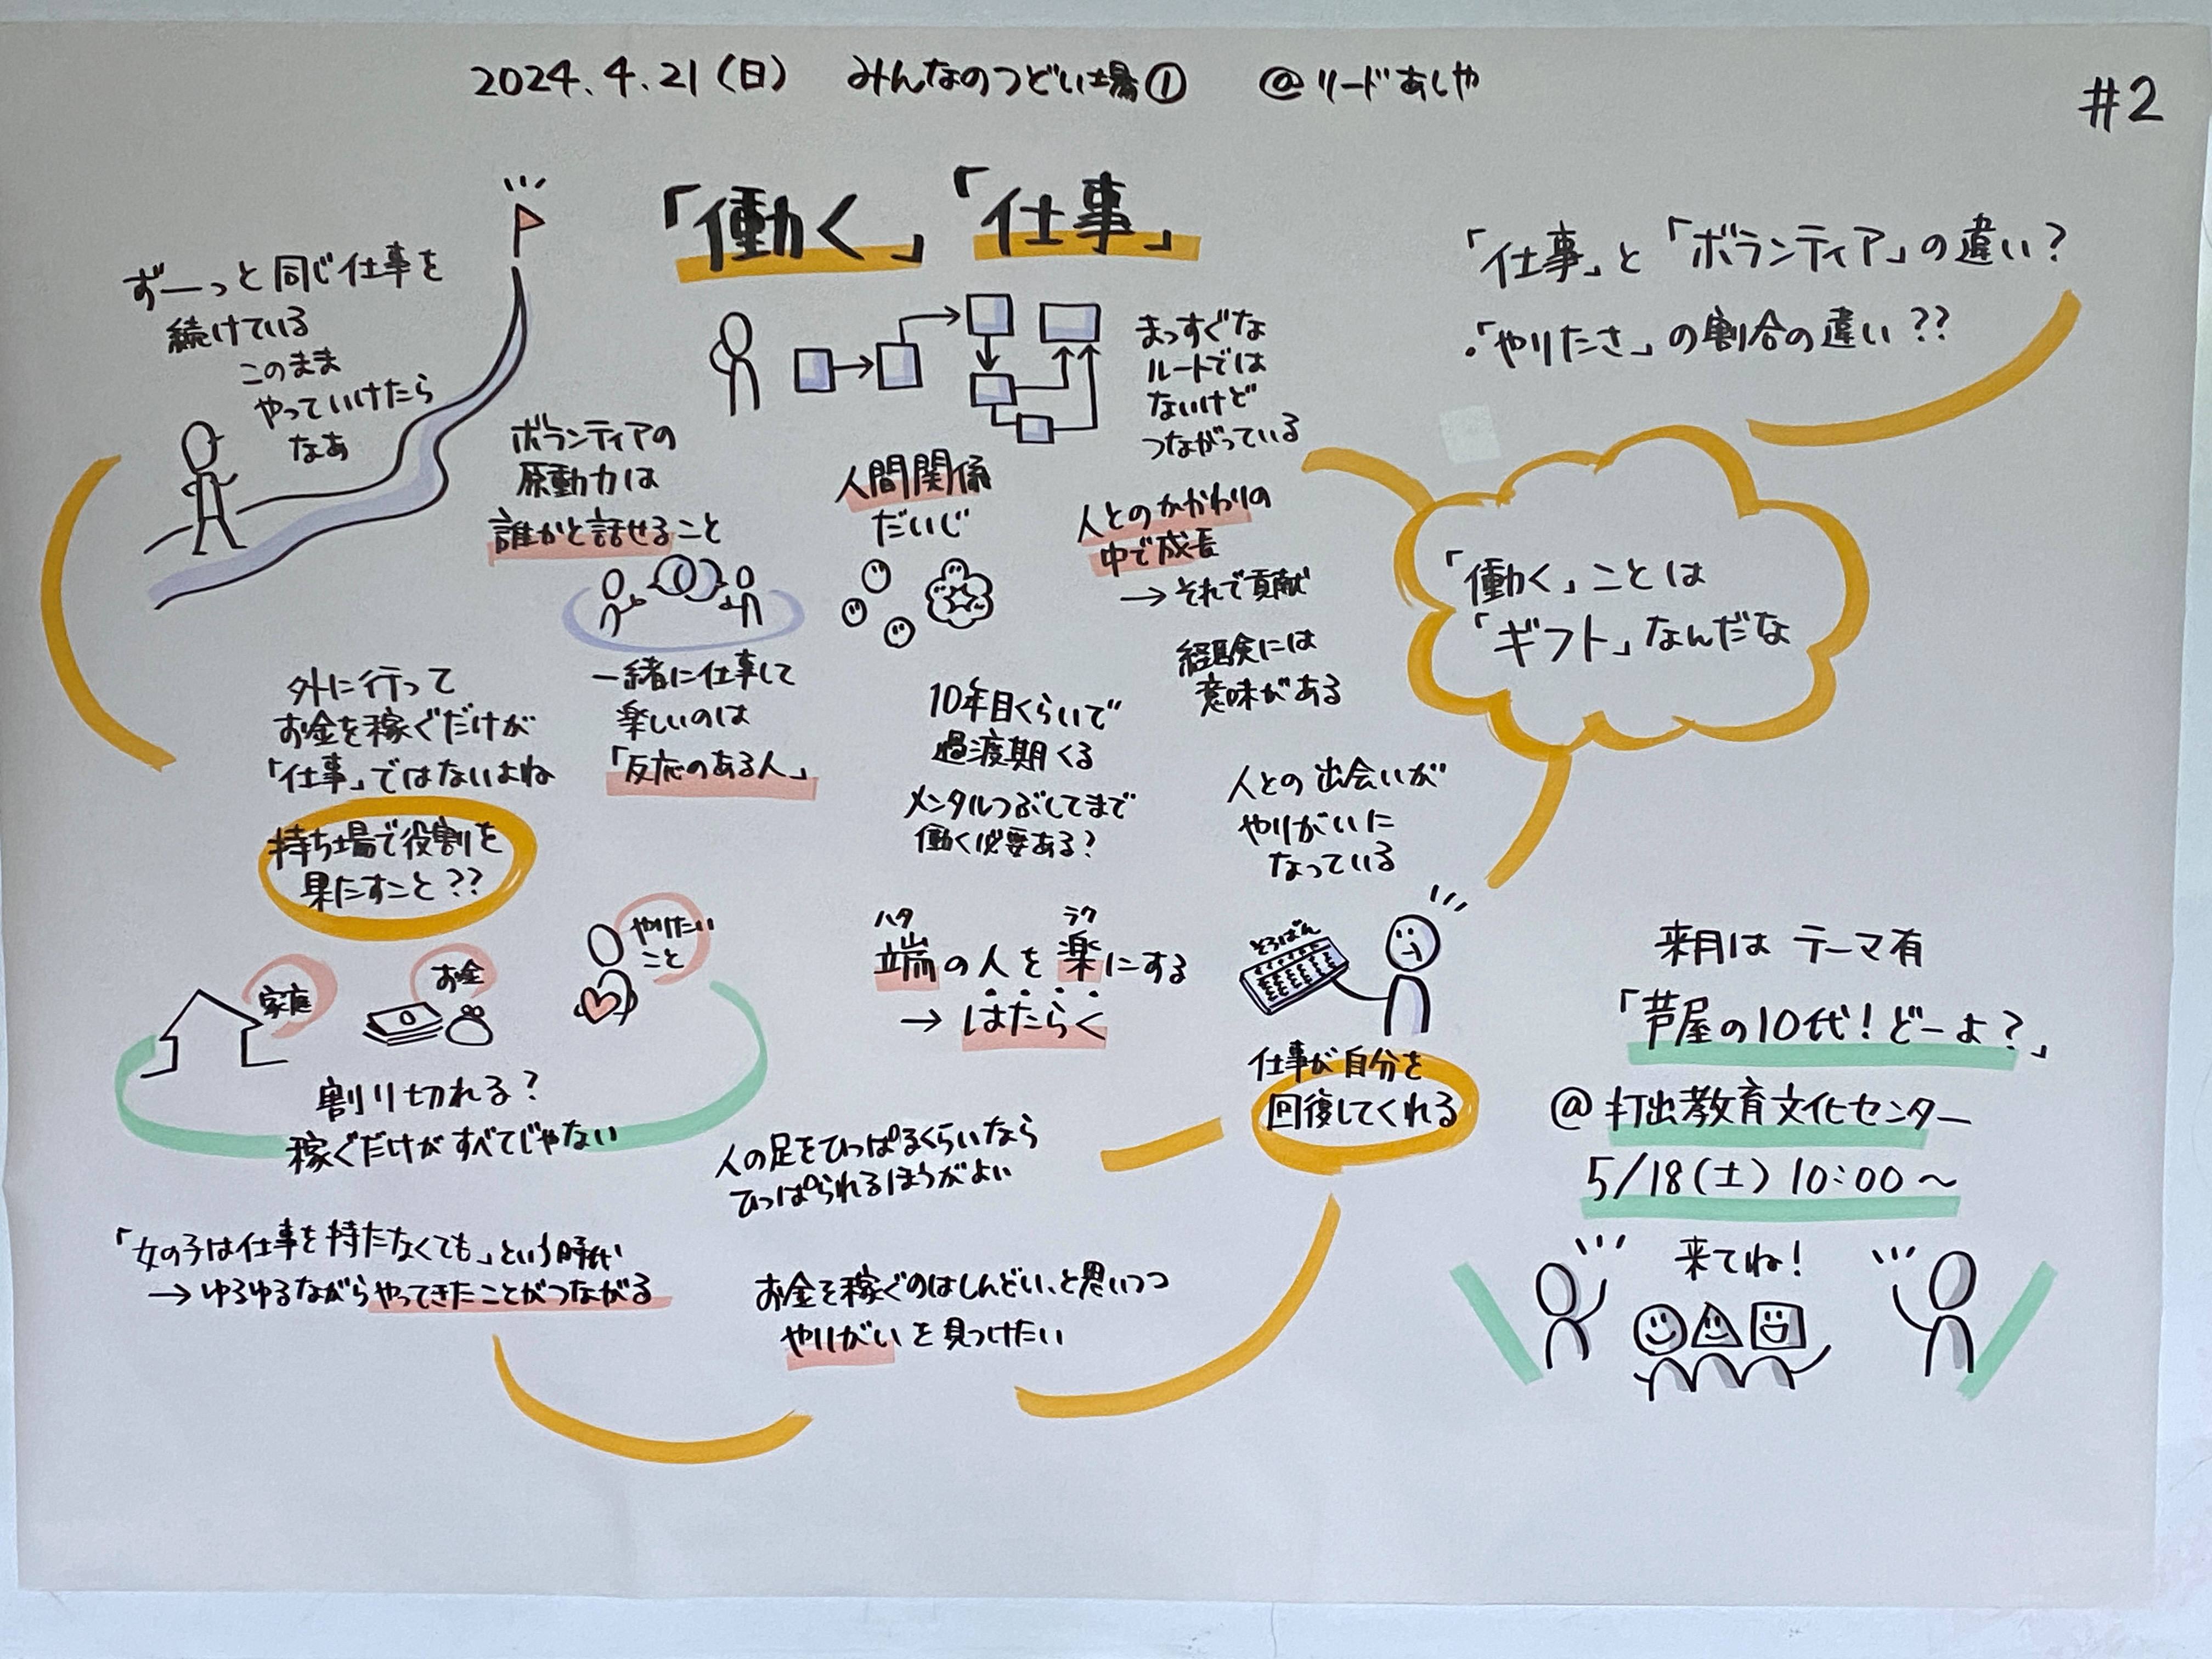 2024.4.21(日) みんなのつどい場① @リードあしや
#2
「働く」「仕事」
ずーっと同じ仕事を
続けている
このまま
やっていけたら
なぁ
まっすぐな
ルートでは
ないけど
つながっている
「仕事」と「ボランティア」の違い?
・「やりたさ」の割合の違い??
ボランティアの
原動力は
誰かと話せること
人間関係
だいじ
人とのかかわりの
中で成長
→それで貢献
経験には
意味がある
「働く」ことは
「ギフト」なんだな
外に行って
お金を稼ぐだけが
「仕事」ではないよね
持ち場で役割を
果たすこと??
一緒に仕事して
楽しいのは
「反応のある人」
10年目くらいで
過渡期くる
メンタルつぶしてまで
働く必要ある?
人との出会いが
やりがいに
なっている
家庭
お金
やりたい
こと
割り切れる?
稼ぐだけがすべてじゃない
ハタ ラク
端の人を楽にする
→はたらく
そろばん
仕事が自分を
回復してくれる
人の足をひっぱるくらいなら
ひっぱられるほうがよい
「女の子は仕事を持たなくても」という時代
→ゆるゆるながらやってきたことがつながる
お金を稼ぐのはしんどい、と思いつつ
やりがいを見つけたい
来月は テーマ有
「芦屋の10代!どーよ?」
@打出教育文化センター
5/18(土) 10:00〜
来てね!